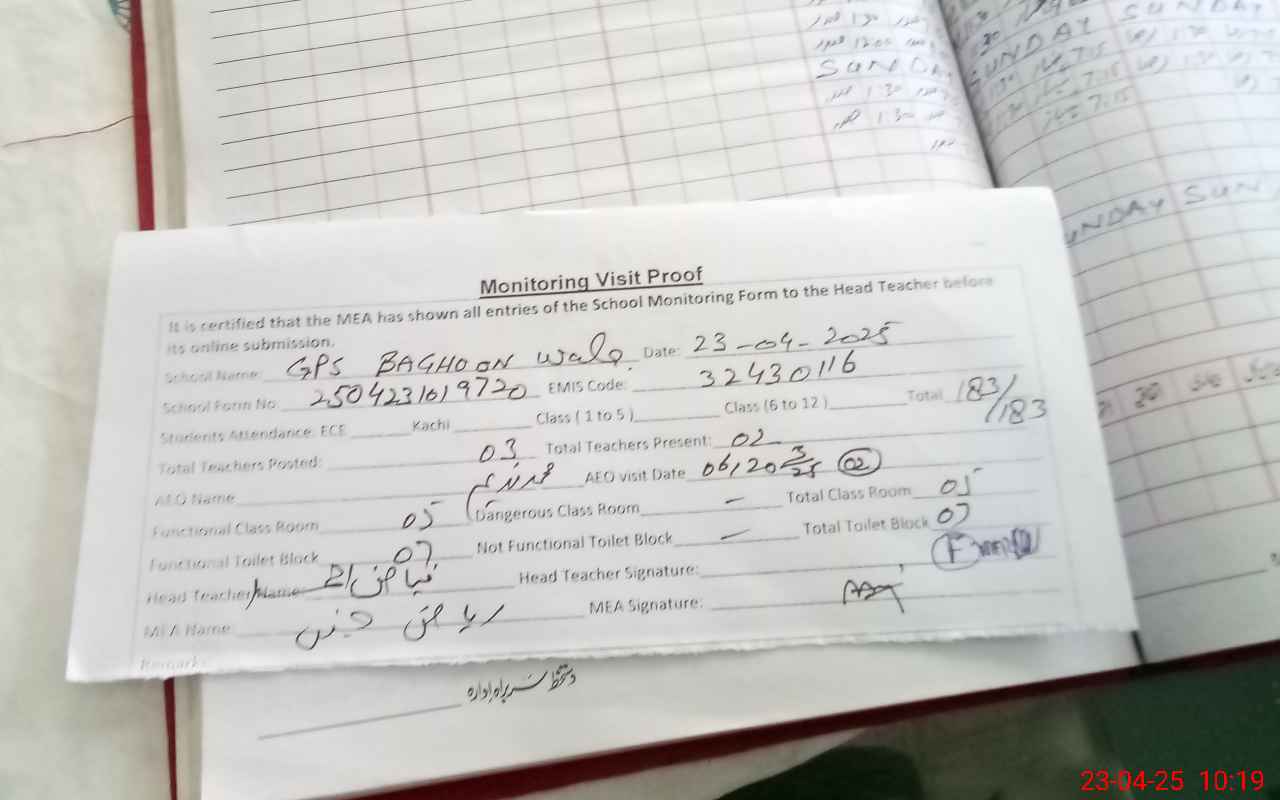 1:30
12:00
SUNDAY
1:30
1:30
SUNDAY
SUNDAY
7:15 1:30
7:15
7:15
SUNDAY SUN
Monitoring Visit Proof
It is certified that the MEA has shown all entries of the School Monitoring Form to the Head Teacher before
its online submission.
School Name: GPS BAGHOON Wala Date: 23-04-2025
School Form No. 2504231619720 EMIS Code: 32430116
Students Attendance: ECE Kachi Class ( 1 to 5 ) Class (6 to 12 ) Total 183/183
Total Teachers Posted: 03 Total Teachers Present: 02
AEO Name محمد ندیم AEO visit Date 06/20 3/25 02
Functional Class Room 05 Dangerous Class Room – Total Class Room 05
Functional Toilet Block 07 Not Functional Toilet Block – Total Toilet Block 07
Head Teacher/Name فیاض احمد Head Teacher Signature:
MEA Name ریاض حسین MEA Signature:
Remark:
دستخط سربراہ ادارہ
23-04-25 10:19